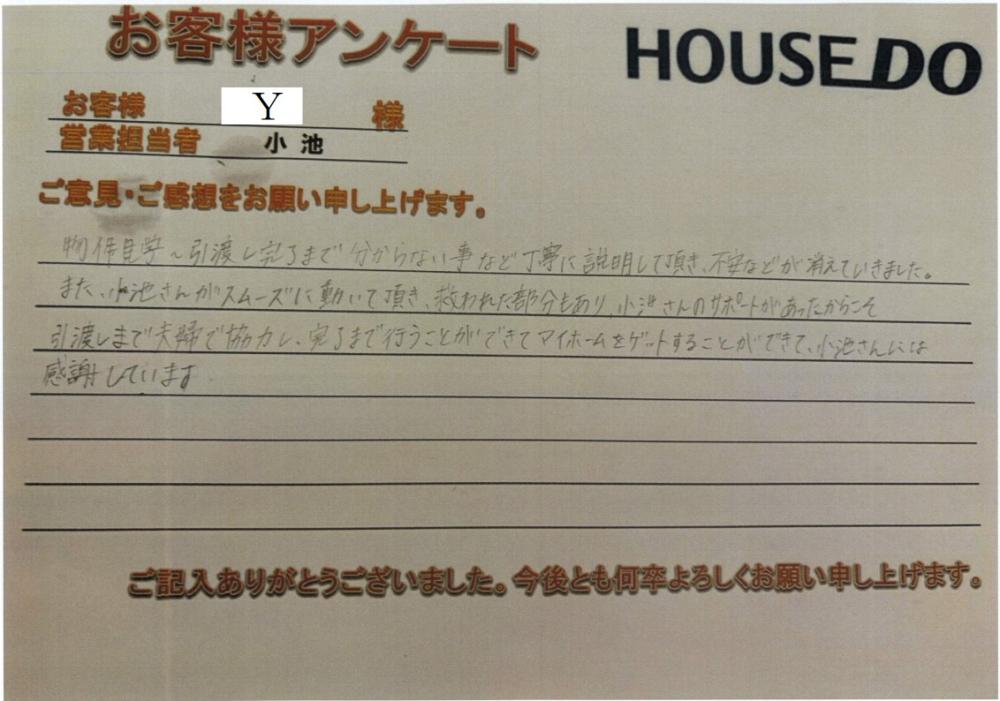 お客様アンケート
HOUSEDO
お客様 Y 様
営業担当者 小池
ご意見・ご感想をお願い申し上げます。
物件見学~引渡し完了まで分からない事など丁寧に説明して頂き、不安などが消えていきました。
また、小池さんがスムーズに動いて頂き、救われた部分もあり、小池さんのサポートがあったからこそ
引渡しまで夫婦で協力し、完了まで行うことができてマイホームをゲットすることができて、小池さんには
感謝しています
ご記入ありがとうございました。今後とも何卒よろしくお願い申し上げます。